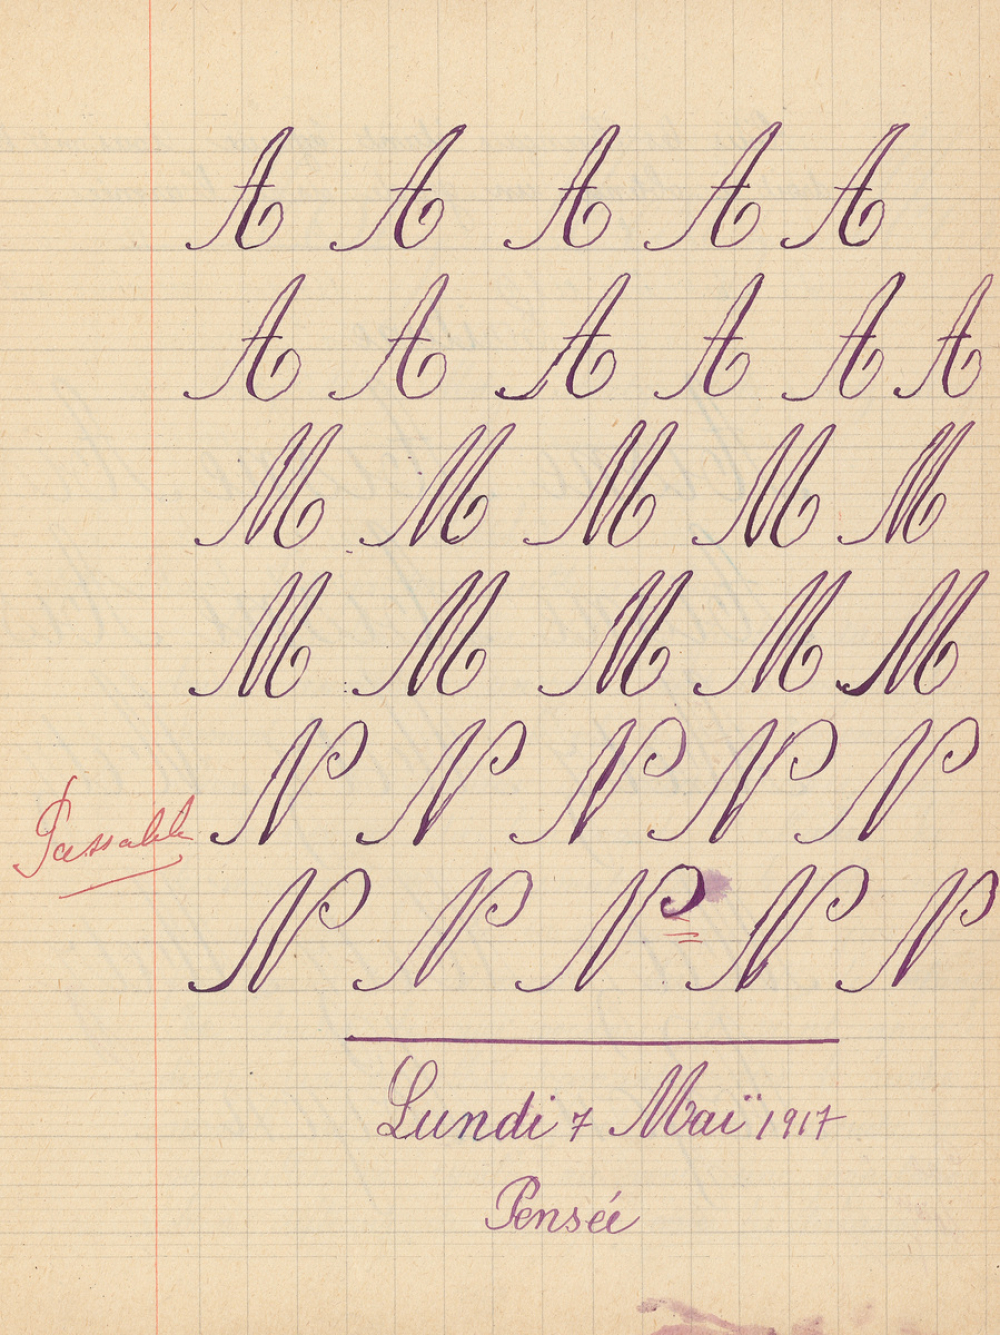 A A A A A
A A A A A A
M M M M M
M M M M M
N N N N N
Passable
N N N N N
Lundi 7 Maï 1917
Pensée